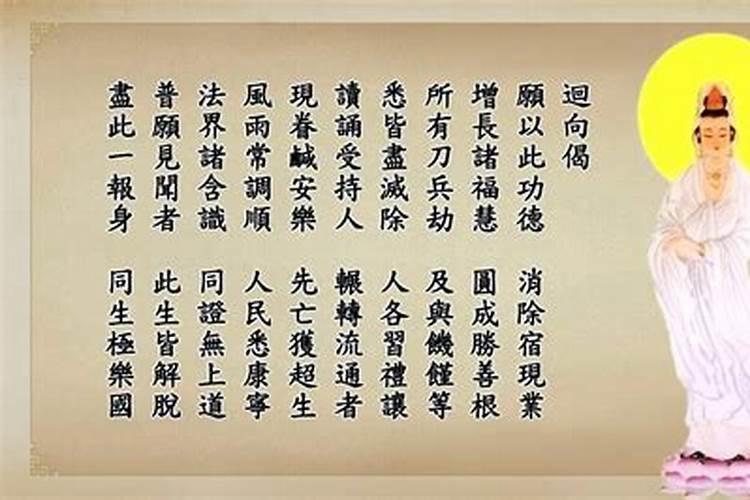 迴向偈
願以此功德 消除宿現業
增長諸福慧 圓成勝善根
所有刀兵劫 及與饑饉等
悉皆盡滅除 人各習禮讓
讀誦受持人 輾轉流通者
現眷咸安樂 先亡獲超生
風雨常調順 人民悉康寧
法界諸含識 同證無上道
普願見聞者 此生皆解脫
盡此一報身 同生極樂國